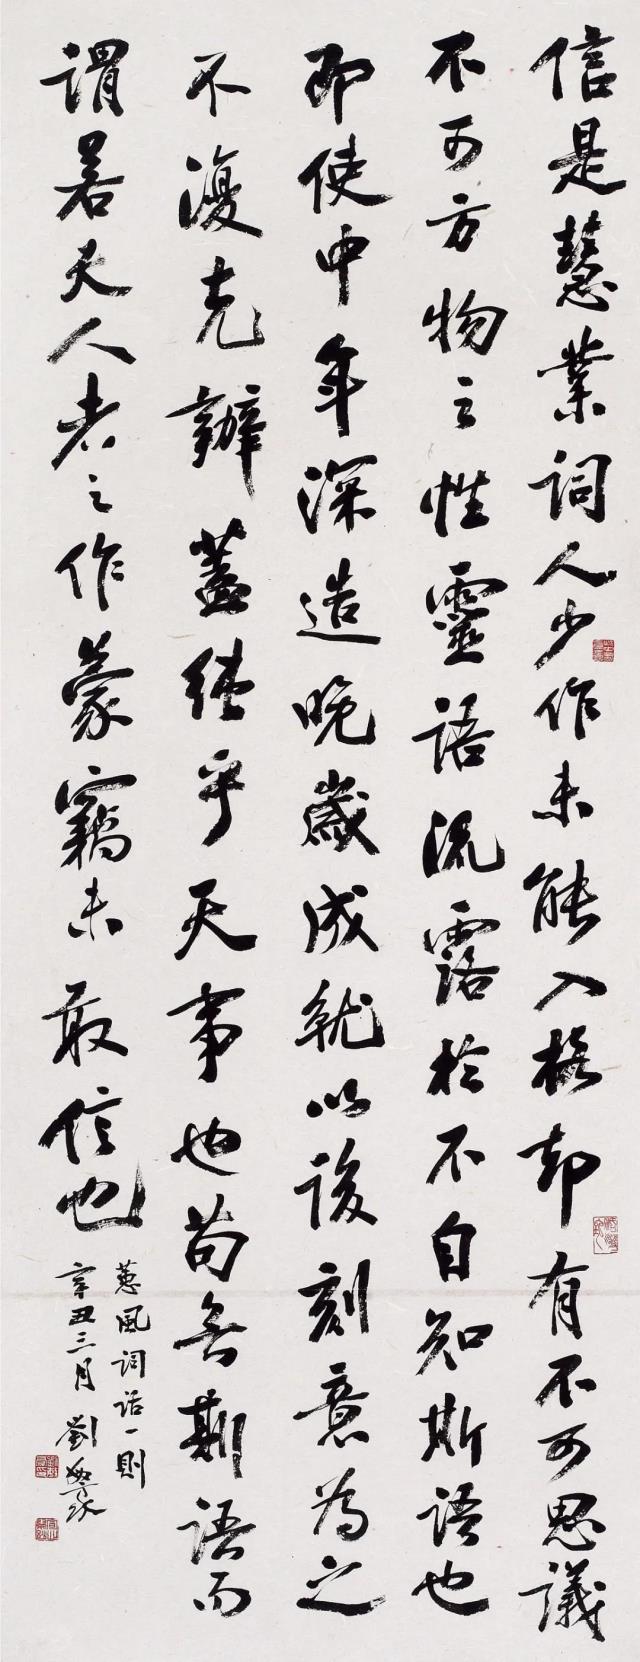 信是慧業詞人少作未能入格却有不可思議
不可方物之性靈語流露於不自知斯語也
即使中年深造晚歲成就以後刻意為之
不復克辦蓋純乎天事也苟無斯語而
謂若夫人者之作蒙竊未敢信也
蕙風詞話一則
辛丑三月劉